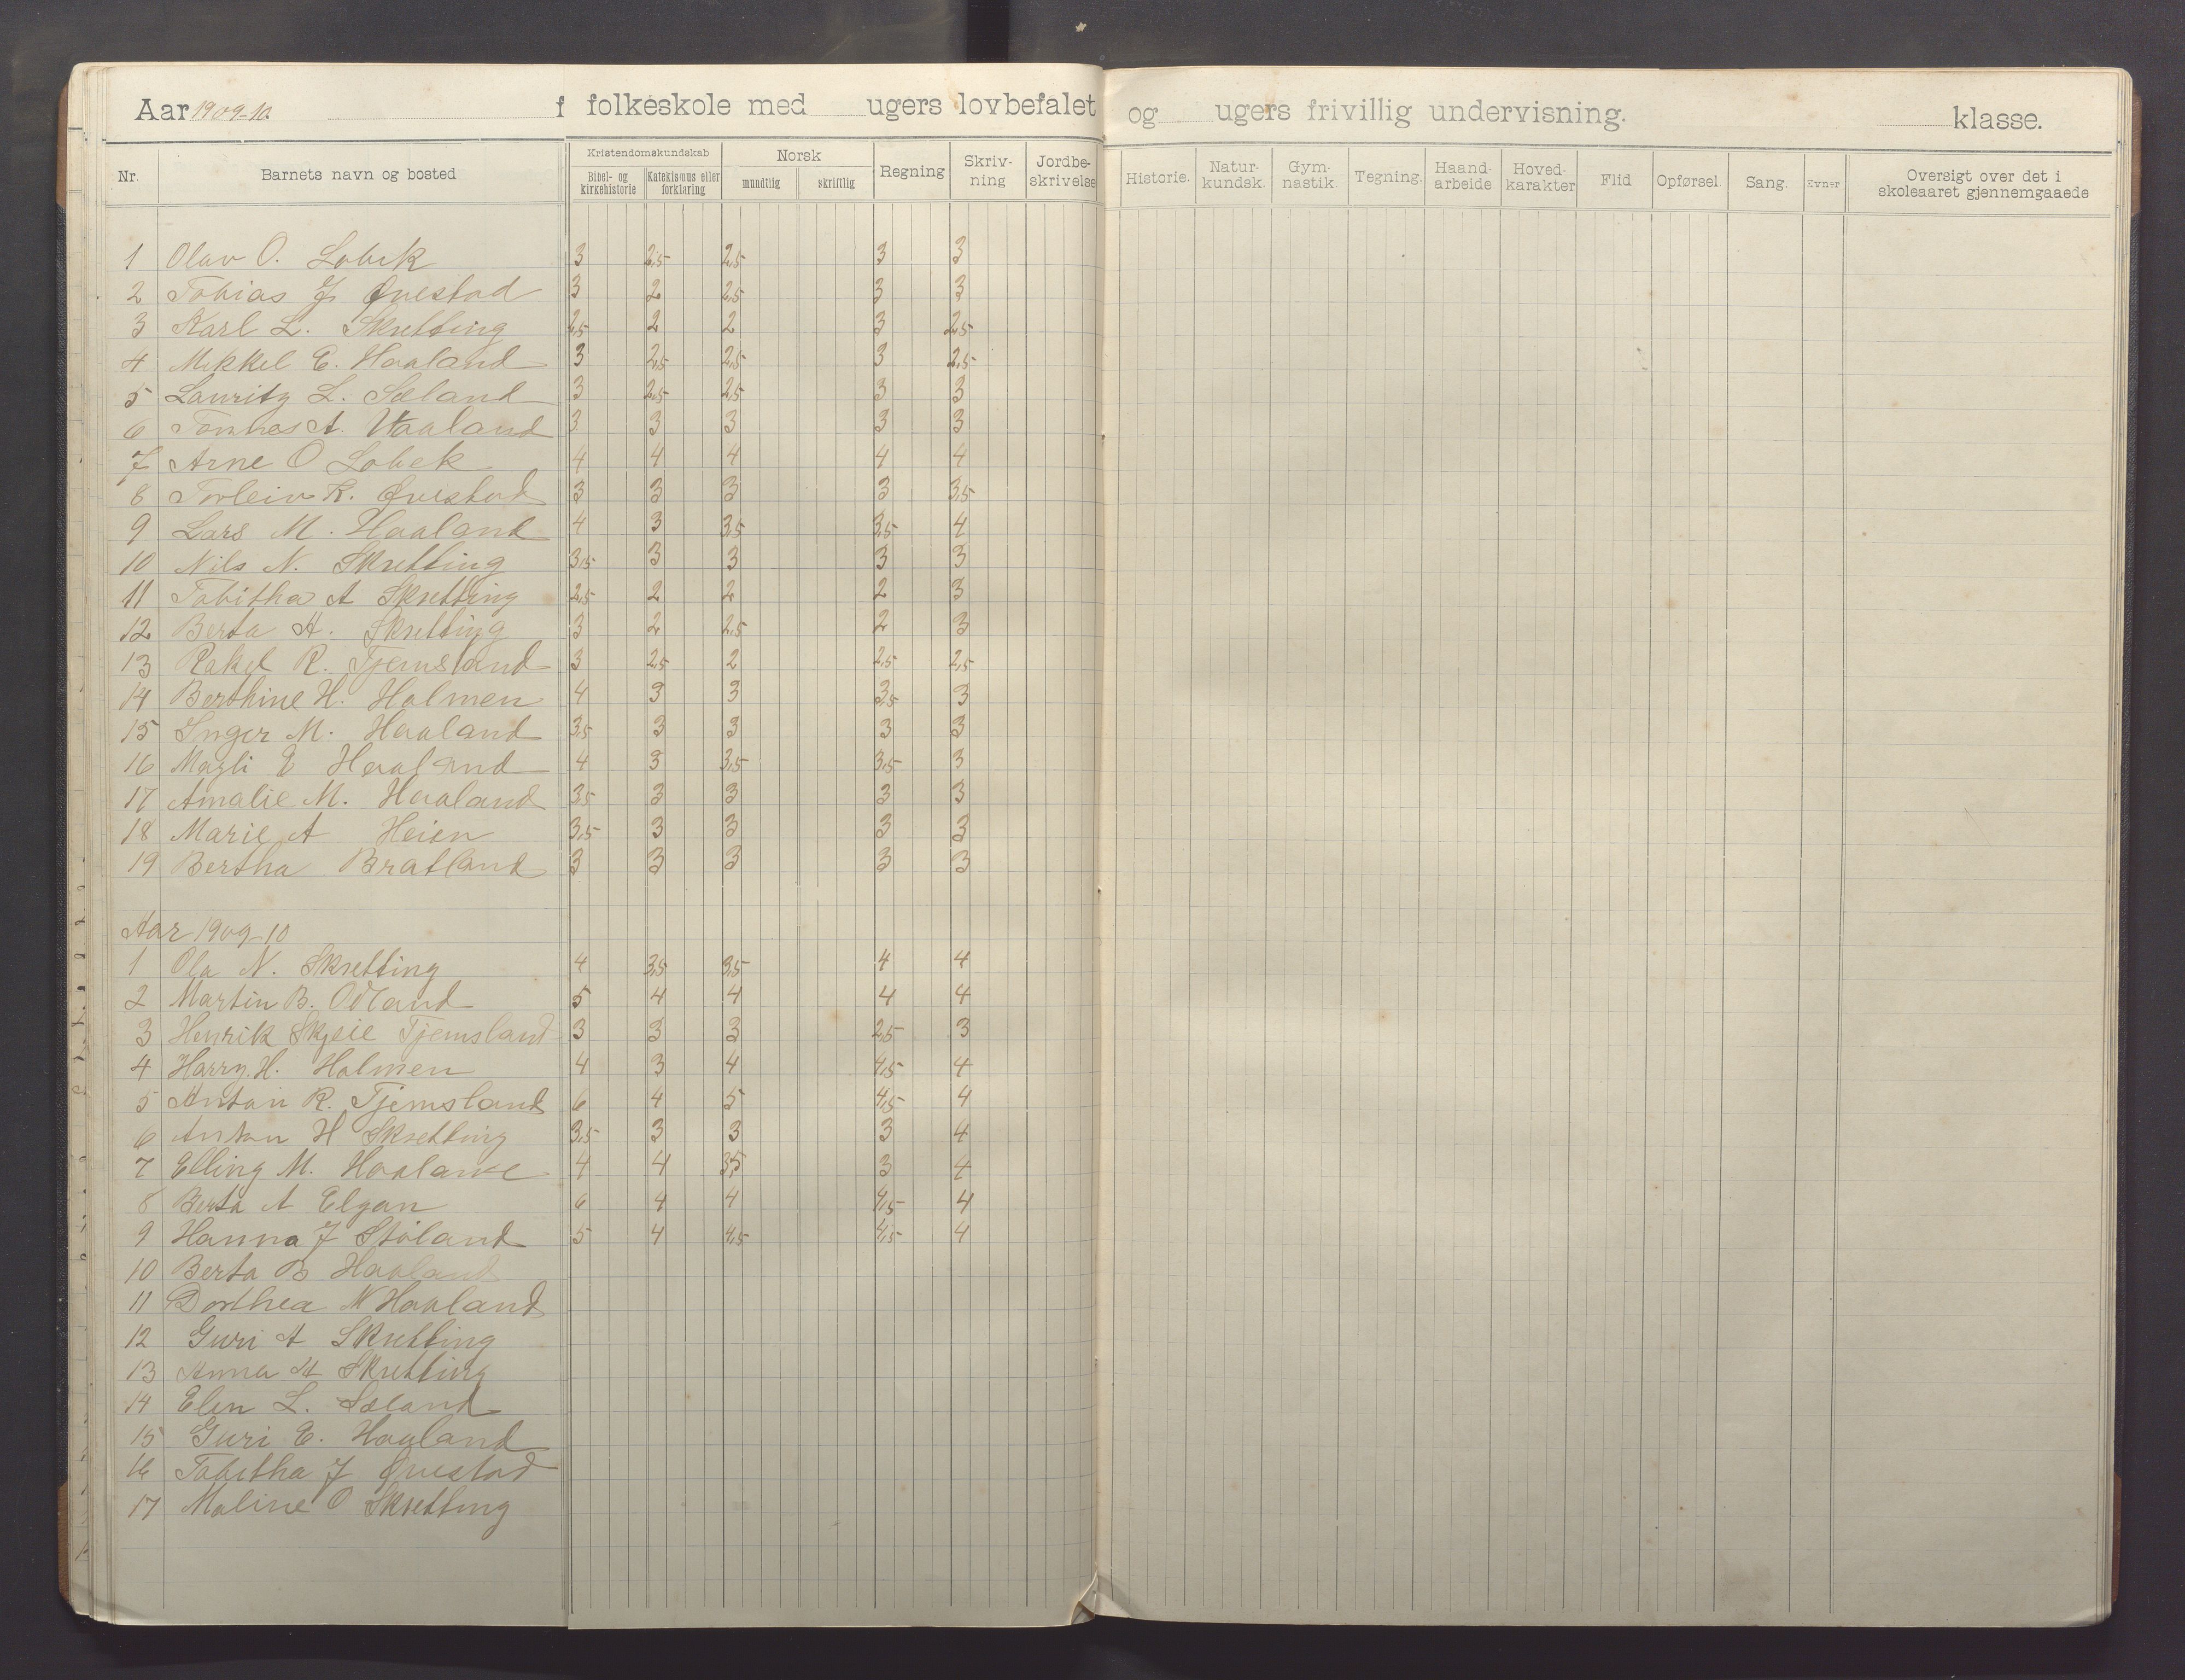 Aar 1909-10. f folkeskole med ugers lovbefalet og ugers frivillig undervisning. klasse.
Nr. Barnets navn og bosted Kristendomskundskab Bibel- og kirkehistorie Katekismus eller forklaring Norsk mundtlig skriftlig Regning Skriv-ning Jordbe-skrivelse Historie. Natur-kundsk. Gym-nastik. Tegning. Haand-arbeide Hoved-karakter Flid Opførsel. Sang. Evner Oversigt over det i skoleaaret gjennemgaaede
1 Olav O. Lobek 3 2,5 2,5 3 3
2 Tobias J. Qvestad 3 2 2,5 3 3
3 Karl L. Skretting 2,5 2 2 3 2,5
4 Mikkel E. Haaland 3 2,5 2,5 3 2,5
5 Lauritz L. Sæland 3 2,5 2,5 3 3
6 Tønnes A. Haaland 3 3 3 3 3
7 Arne O Lobek 4 4 4 4 4
8 Torleiv R. Qvestad 3 3 3 3 3,5
9 Lars M. Haaland 4 3 3,5 3,5 4
10 Nils N. Skretting 3,5 3 3 3 3
11 Tabitha A Skretting 2,5 2 2 2 3
12 Berta H. Skretting 3 2 2,5 2 3
13 Rakel R. Tjemsland 3 2,5 2 2,5 2,5
14 Berthine H. Holmen 4 3 3 3,5 3
15 Inger M. Haaland 3,5 3 3 3 3
16 Magli E Haaland 4 3 3,5 3,5 3
17 Amalie M. Haaland 3,5 3 3 3 3
18 Marie A Heien 3,5 3 3 3 3
19 Bertha Bratland 3 3 3 3 3
Aar 1909-10
1 Ola N. Skretting 4 3,5 3,5 4 4
2 Martin B. Odland 5 4 4 4 4
3 Henrik Skjeie Tjemsland 3 3 3 2,5 3
4 Harry. H. Holmen 4 3 4 4,5 4
5 Anton R. Tjemsland 6 4 5 4,5 4
6 Anton H Skretting 3,5 3 3 3 4
7 Elling M. Haaland 4 4 3,5 3 4
8 Berta A Elgan 6 4 4 4,5 4
9 Hanna J Støland 5 4 4,5 4,5 4
10 Berta B Haaland
11 Dorthea N Haaland
12 Guri A Skretting
13 Anna H Skretting
14 Elen L. Sæland
15 Guri E. Haaland
16 Tabitha J Qvestad
17 Maline O Skretting